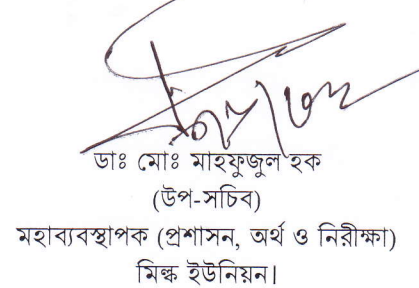 ডাঃ মোঃ মাহফুজুল হক
(উপ-সচিব)
মহাব্যবস্থাপক (প্রশাসন, অর্থ ও নিরীক্ষা)
মিল্ক ইউনিয়ন।